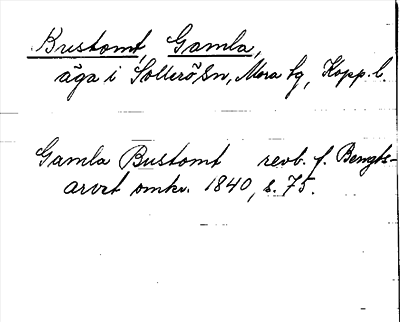 Bustomt, Gamla,
äga i Sollerö sn, Mora tg, Kopp. l.
Gamla Bustomt revb. f. Bengts-
arvet omkr. 1840, s. 75.